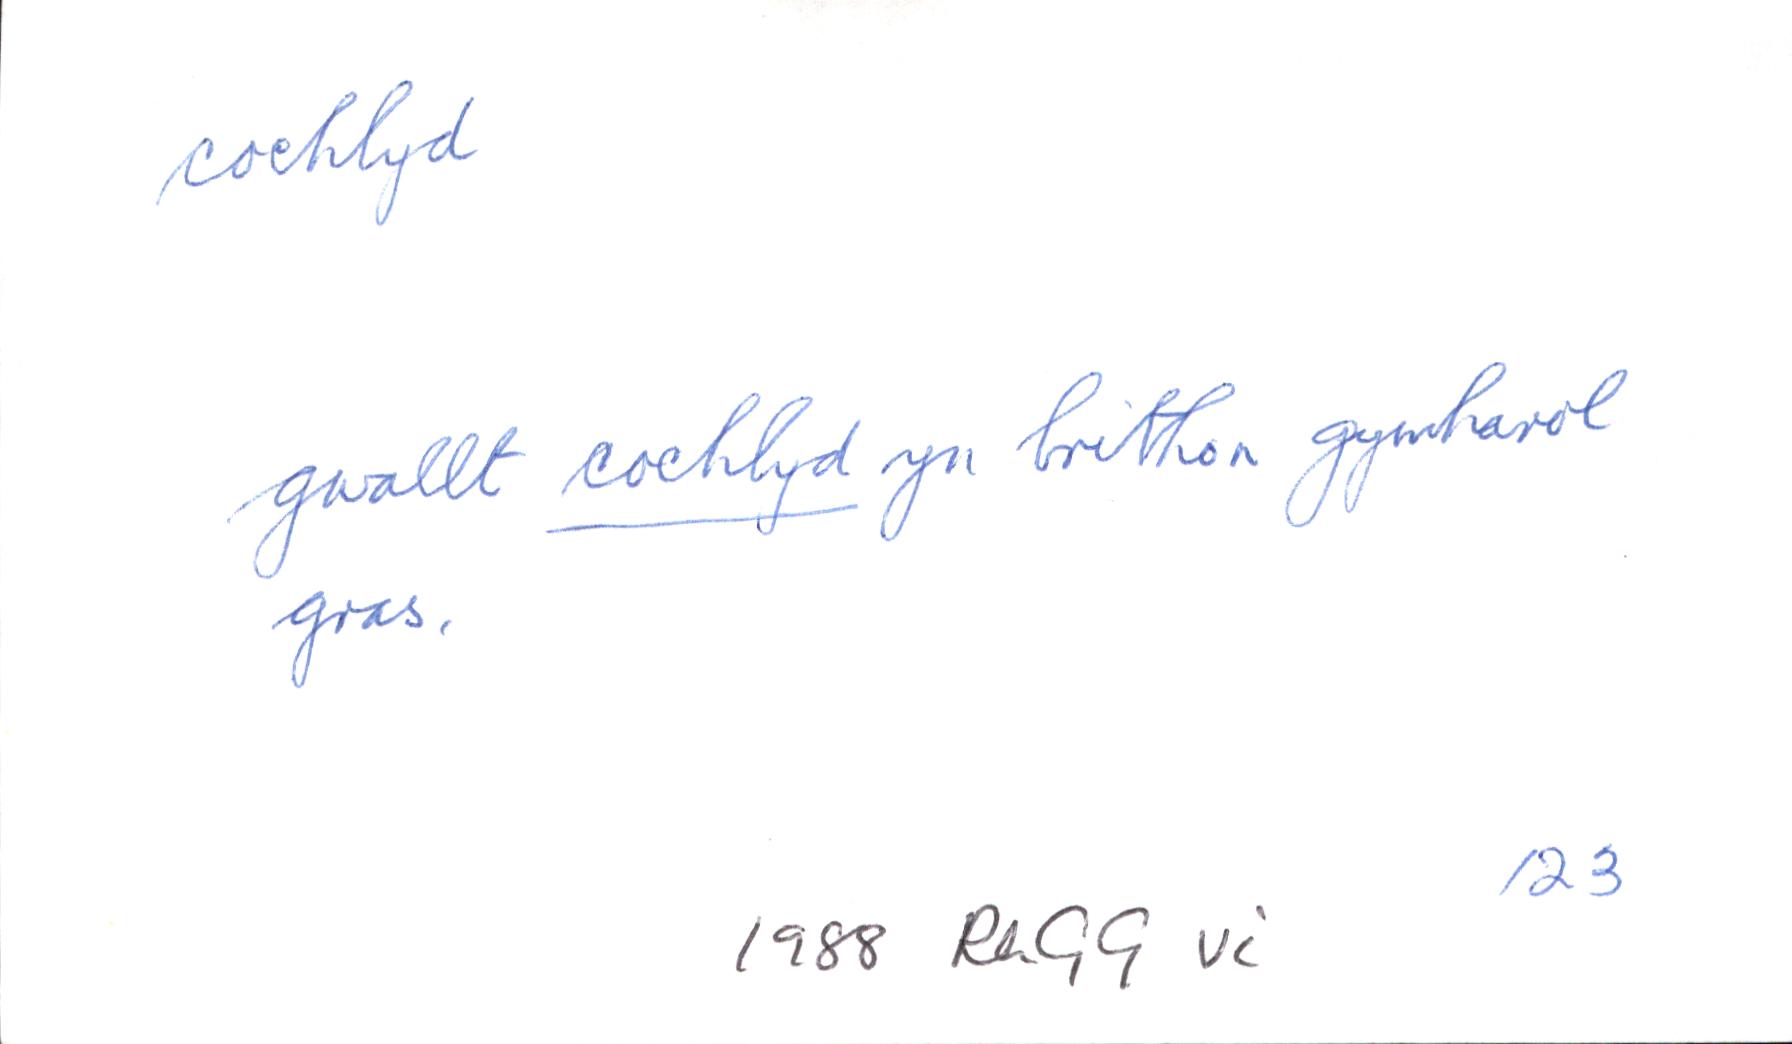 cochlyd
gwallt cochlyd yn brithon gymharol
gras.
123
1988 RhGG vi